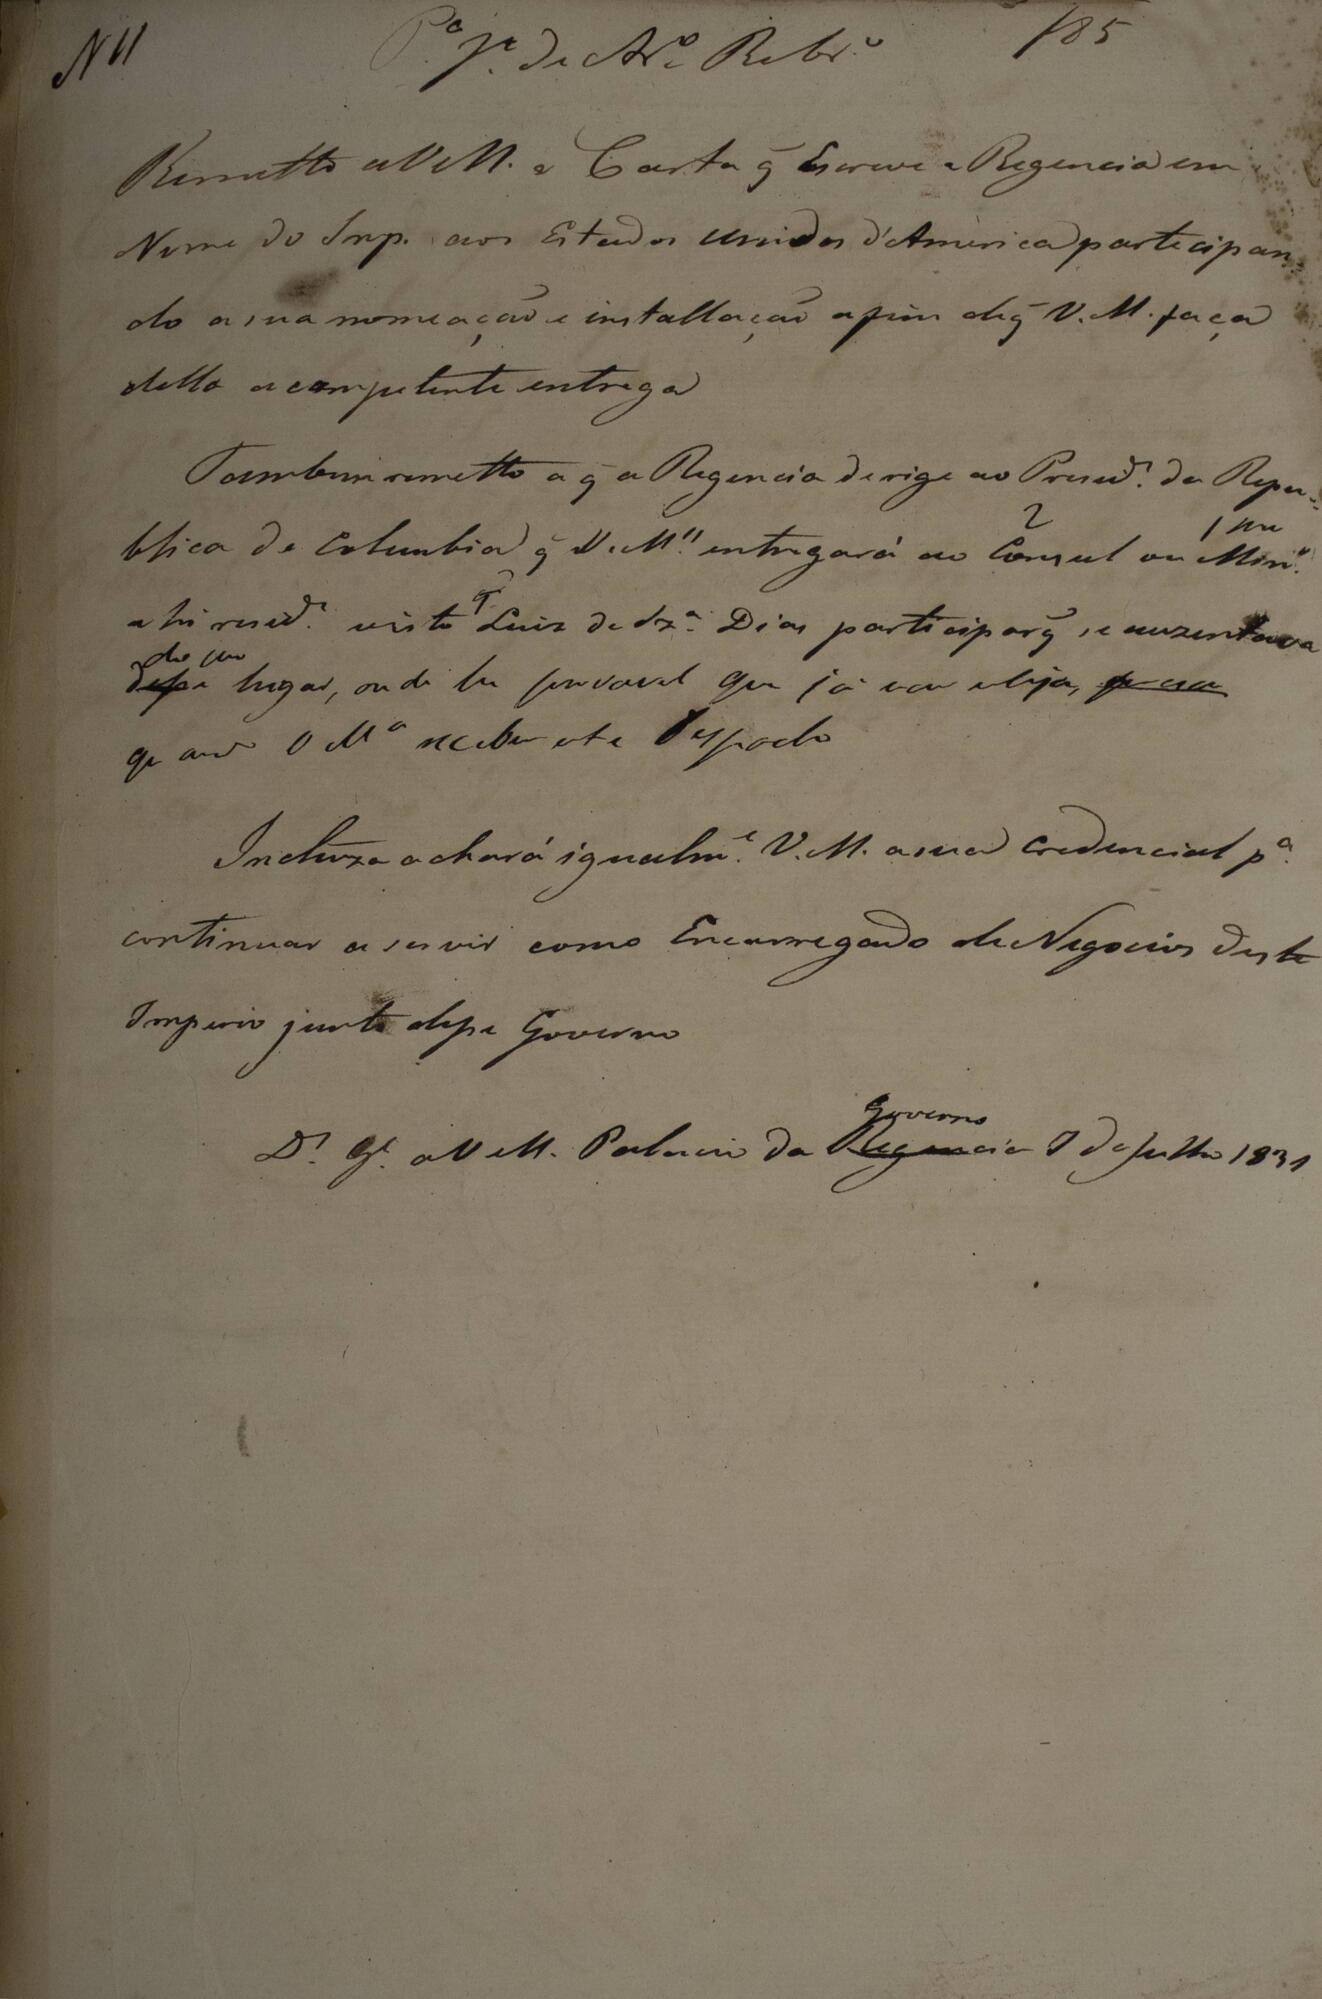 N 11
P.ª J.e de Ar.º Rebr.º
185
Remetto a V. M. a Carta q̃ Escreve a Regencia em
Nome do Imp. aos Estados Unidos d'America participan-
do a sua nomeação e installação afim de q̃ V. M. faça
della a competente entrega
Tambem remetto a q̃ a Regencia derige ao Presid.e da Repu-
blica de Columbia q̃ V. M.ce entregará ao Consul ou Min.º
2 1 seu
ahi resid.e visto q̃ Luiz de Sz.ª Dias participar q̃ se auzentava
do seu
desse lugar, onde he provavel que já não esteja,
quand.º V M.ce receber este Despacho
Incluza achará igualm.e V. M. a sua Credencial p.ª
continuar a servir como Encarregado de Negocios deste
Imperio junto desse Governo
Governo
D.s G.e a V. M. Palacio da Regencia 7 de Julho 1831